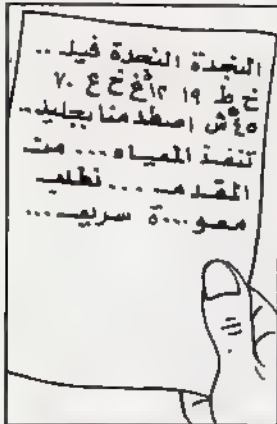 النجدة النجدة فيلد ..
خ ط ١٩ ١٢ غ خ ع ٧٠
٤٥ ش اصطدمنا بجليد ..
تنفذ المياه ... من
المقدمـ ... نطلب
معو...ة سريعـ ...